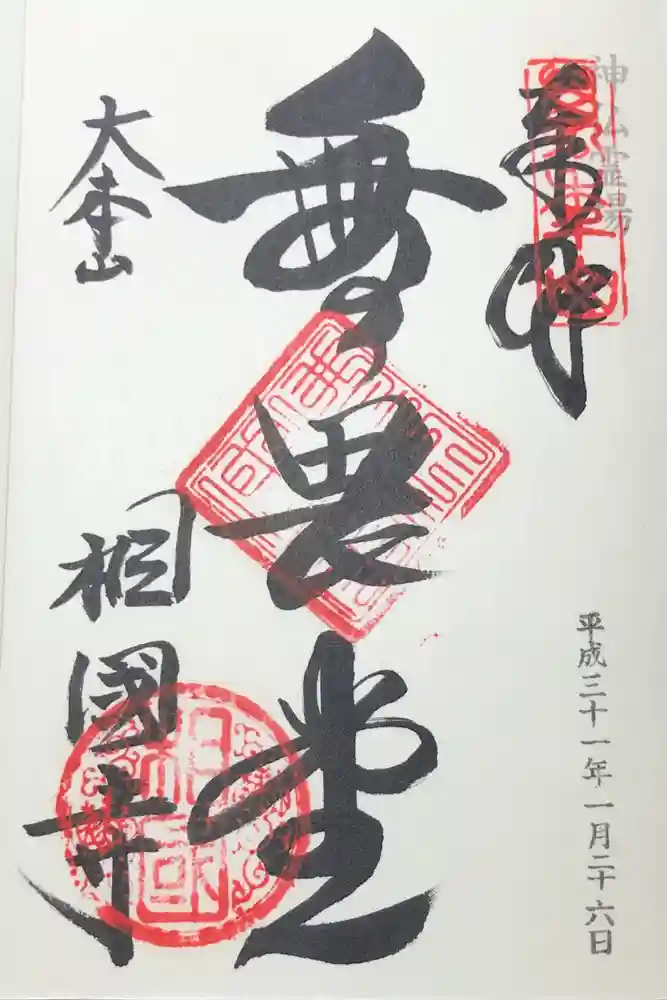 神仏霊場
奉拝
平成三十一年一月二十六日
無畏堂
大本山
相國寺